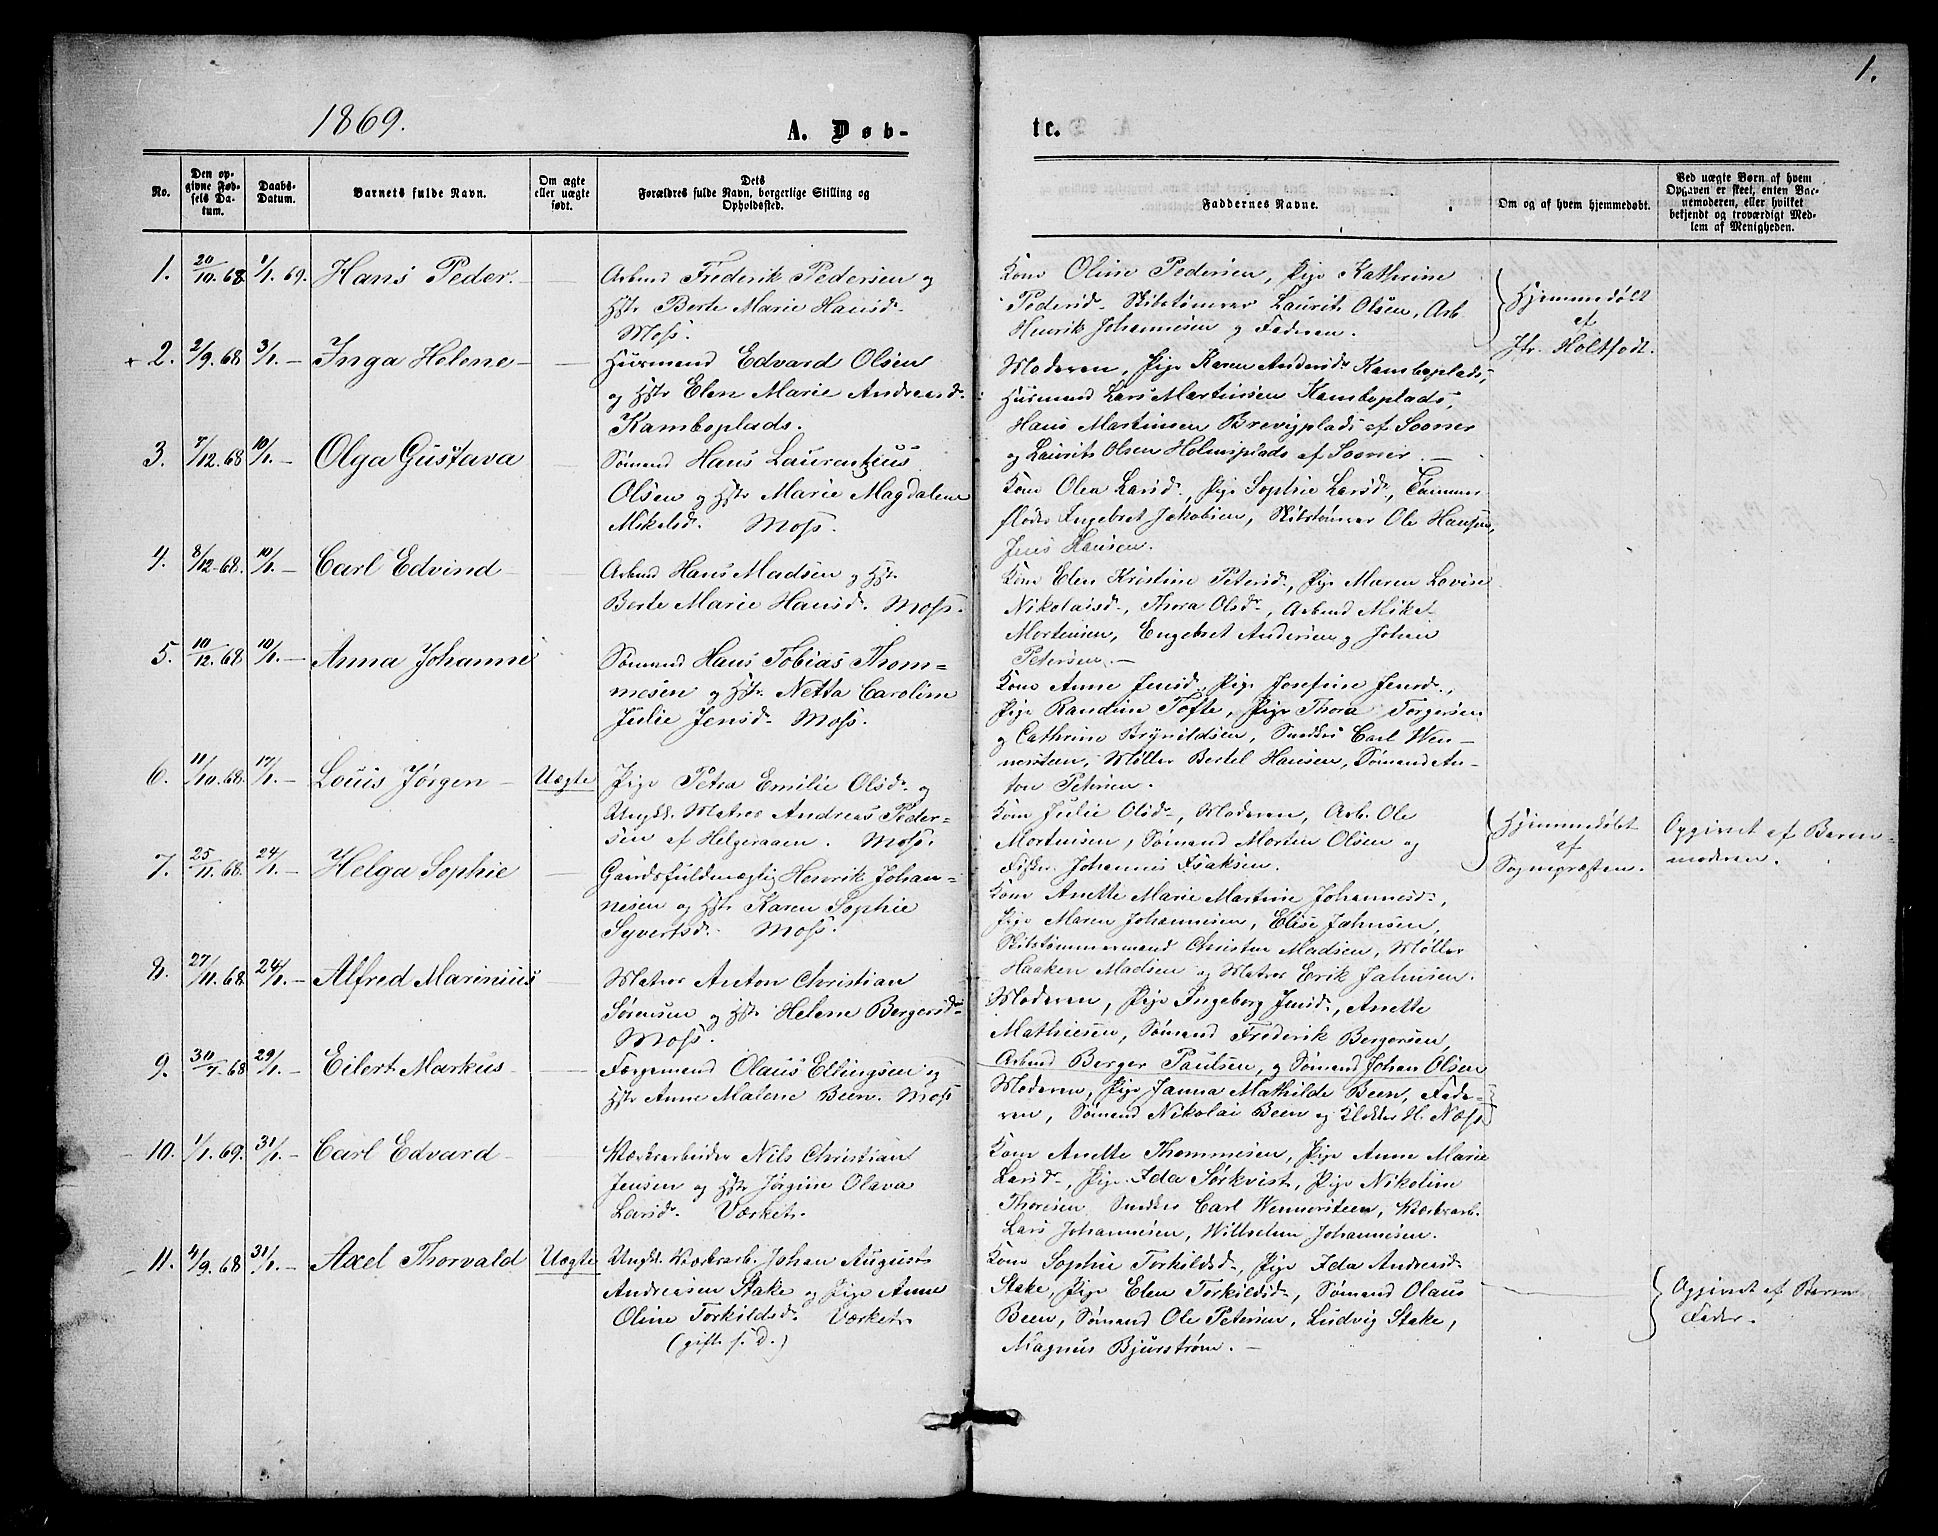 1.
1869.
A. Døb-
te.
No.
Den op-
givne Fød-
sels Da-
tum.
Daabs-
Datum.
Barnets fulde Navn.
Om ægte
eller uægte
født.
Dets
Forældres fulde Navn, borgerlige Stilling og
Opholdssted.
Faddernes Navne.
Om og af hvem hjemmedøbt.
Ved uægte Børn af hvem
Opgaven er skeet, enten Bar-
nemoderen, eller hvilket
bekjendt og troværdigt Med-
lem af Menigheden.
1. 20/10. 68. 1/1. 69. Hans Peder. —
Arbmd Frederik Pedersen og
Hstr Berte Marie Hansd.
Moss.
Kone Oline Pedersen, Pige Kathrine
Pedersd. Skibstømrer Laurits Olsen, Arb
Henrik Johannesen og Faderen.
Hjemmedøbt
af
Jfr. Holtfodt.
+ 2. 2/9. 68. 3/1. — Inga Helene —
Husmand Edvard Olsen
og Hstr Elen Marie Andreasd.
Kamboplads.
Moderen, Pige Karen Andersd. Kamboplads,
Husmand Lars Martinsen Kamboplads,
Hans Martinsen Brevigplads af Sooner
og Laurits Olsen Holmsplads af Sooner. —
3. 7/12. 68 10/1. — Olga Gustava
Sømand Hans Laurentzius
Olsen og Hstr Marie Magdalene
Mikelsd. Moss.
Kone Olea Larsd., Pige Sophie Larsd., Tømmer
fløder Engebret Jakobsen, Skibstømrer Ole Hansen,
Jens Hansen.
4. 8/12. 68. 10/1. — Carl Edvind —
Arbmd Hans Madsen og Hstr.
Berte Marie Hansd. Moss.
Kone Elen Kristine Petersd., Pige Maren Lovise
Nikolaisd., Thora Olsd., Arbmd Mikel
Mortensen, Engebret Andersen og Johan
Petersen. —
5. 10/12. 68 10/1. — Anna Johanne
Sømand Hans Tobias Thom-
mesen og Hstr. Netta Caroline
Julie Jensd. Moss.
Kone Anne Jensd., Pige Josefine Jensd.,
Pige Randine Tofte, Pige Thora Torgersen
og Cathrine Brynildsen, Snedker Carl Wen-
nersteen, Møller Bertel Hansen, Sømand An-
ton Petersen.
6. 11/10. 68. 17/1. — Louis Jørgen — Uægte
Pige Petra Emilie Olsd. og
Ungk. Matros Andreas Peder-
sen af Helgeraaen. Moss.
Kone Julie Olsd., Moderen, Arb. Ole
Mortensen, Sømand Morten Olsen og
Fisker Johannes Isaksen.
Hjemmedøbt
af
Sognepræsten.
Opgivet af Barne-
moderen.
7. 25/11. 68. 24/1. — Helga Sophie —
Gaardsfuldmægtig Henrik Johan-
nesen og Hstr Karen Sophie
Syvertsd. Moss.
Kone Anette Marie Martine Johannesd.,
Pige Maren Johannesen, Elise Jahnsen,
Skibstømmermand Christen Madsen, Møller
Haaken Madsen og Matros Erik Jahnsen.
8. 27/11. 68. 24/1. — Alfred Marinius —
Matros Anton Christian
Sørensen og Hstr Helene Bergersd.
Moss.
Moderen, Pige Ingeborg Jensd., Anette
Mathiesen, Sømand Frederik Bergersen,
Arbmd Berger Paulsen, og Sømand Johan Olsen
9. 30/7. 68 29/1. — Eilert Markus —
Færgemand Olaus Ellingsen og
Hstr Anne Malene Been. Moss
Moderen, Pige Janna Mathilde Been, Fade-
ren, Sømand Nikolai Been og Klokker H. Næss
10. 1/1. 69. 31/1. — Carl Edvard —
Værksarbeider Nils Christian
Jensen og Hstr Jørgine Olava
Larsd. Værket.
Kone Anette Thommesen, Pige Anne Marie
Larsd., Pige Ida Sørkvist, Pige Nikoline
Thoresen, Snedker Carl Wennersteen, Værksarb.
Lars Johannesen, Wilhelm Johannesen.
— 11. 4/9. 68 31/1. — Axel Thorvald Uægte
Ungk. Værksarb. Johan August
Andreasen Stake og Pige Anne
Oline Torkildsd. Værket.
(gift s. D.)
Kone Sophie Torkildsd., Pige Ida Andreasd.
Stake, Pige Elen Torkildsd., Sømand Olaus
Been, Sømand Ole Petersen, Ludvig Stake,
Magnus Bjurstrøm. —
Opgivet af Barnets
Fader.